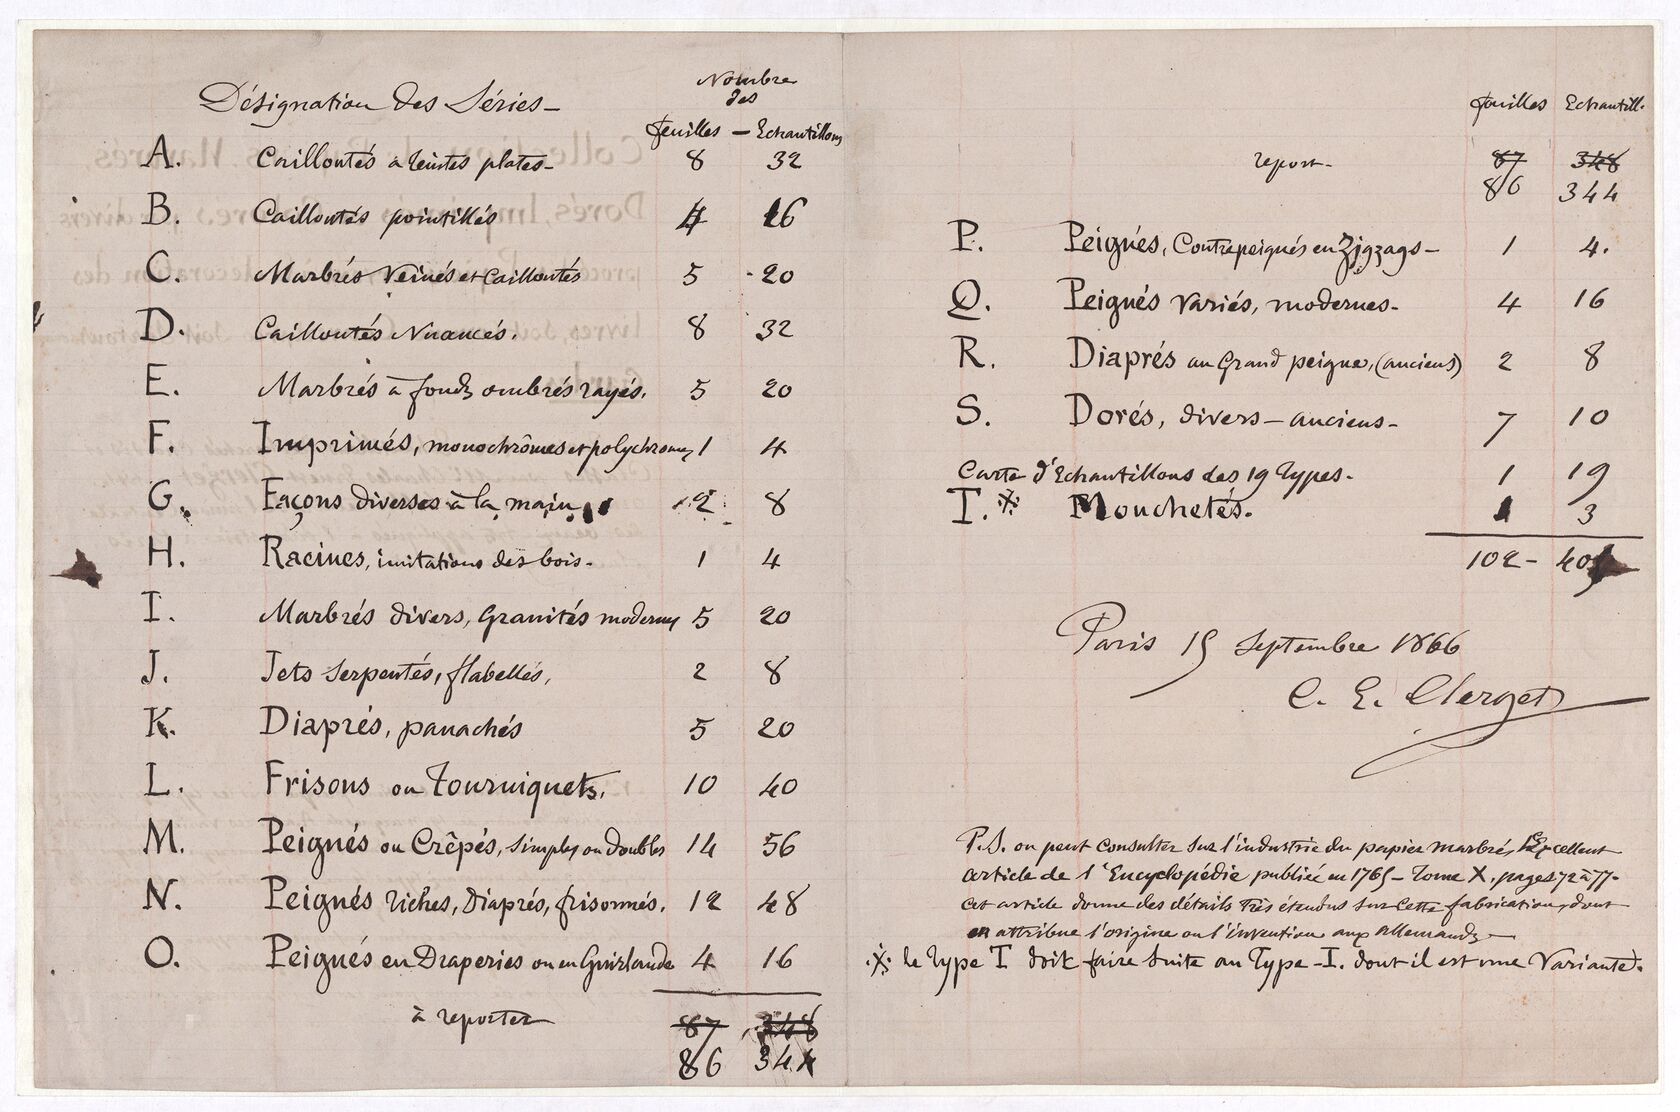 Désignation des Séries –
Nombre
des
feuilles – Echantillons
A. Cailloutés à teintes plates – 8 32
B. Cailloutés pointillés 4 16
C. Marbrés Veinés et Cailloutés 5 20
D. Cailloutés Nuancés. 8 32
E. Marbrés à fonds ombrés rayés. 5 20
F. Imprimés, monochrômes et polychromes 1 4
G. Façons diverses à la main 2 8
H. Racines, imitations des bois. 1 4
I. Marbrés divers, Granités modernes 5 20
J. Jets serpentés, flabellés, 2 8
K. Diaprés, panachés 5 20
L. Frisons ou Tourniquets. 10 40
M. Peignés ou Crêpés, simples ou doubles 14 56
N. Peignés riches, Diaprés, frisonnés. 12 48
O. Peignés en Draperies ou en Guirlande 4 16
à reporter 87 348
86 344
feuilles Echantill.
report – 87 348
86 344
P. Peignés, Contrepeignés en Zigzags – 1 4.
Q. Peignés Variés, modernes. 4 16
R. Diaprés au Grand peigne, (anciens) 2 8
S. Dorés, divers – anciens – 7 10
Carte d'Echantillons des 19 types. 1 19
T. ※ Mouchetés. 1 3
102 – 40
Paris 15 Septembre 1866
C. E. Clerget
P.S. on peut consulter sur l'industrie du papier marbré, l'Excellent
article de l'Encyclopédie publiée en 1765 – Tome X, pages 72 à 77.
cet article donne des détails très étendus sur cette fabrication, dont
on attribue l'origine ou l'invention aux allemands –
※ le type T doit faire suite au Type – I. dont il est une Variante.